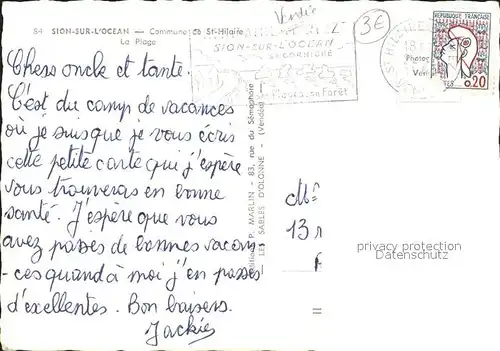 84 SION-SUR-L'OCEAN — Commune de St-Hilaire
La Plage
Vendée
3€
SION-SUR-L'OCEAN
REPUBLIQUE FRANÇAISE
0,20
Chers oncle et tante.
C'est du camp de vacances
où je suis que je vous écris
cette petite carte qui j'espère
vous trouveras en bonne
santé. J'espère que vous
avez passés de bonnes vacan
-ces quand à moi j'en passes
d'excellentes. Bon baisers.
Jackies
P. MARLIN - 83, rue du Sémaphore
LES SABLES D'OLONNE - (Vendée)
13
privacy protection
Datenschutz